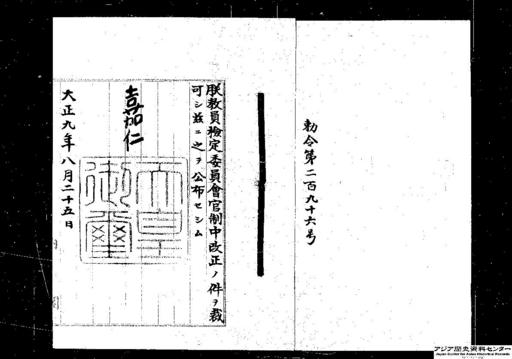 勅令第二百九十六号
朕教員檢定委員會官制中改正ノ件ヲ裁
可シ茲ニ之ヲ公布セシム
嘉仁
天皇御璽
大正九年八月二十五日
アジア歴史資料センター
Japan Center for Asian Historical Records